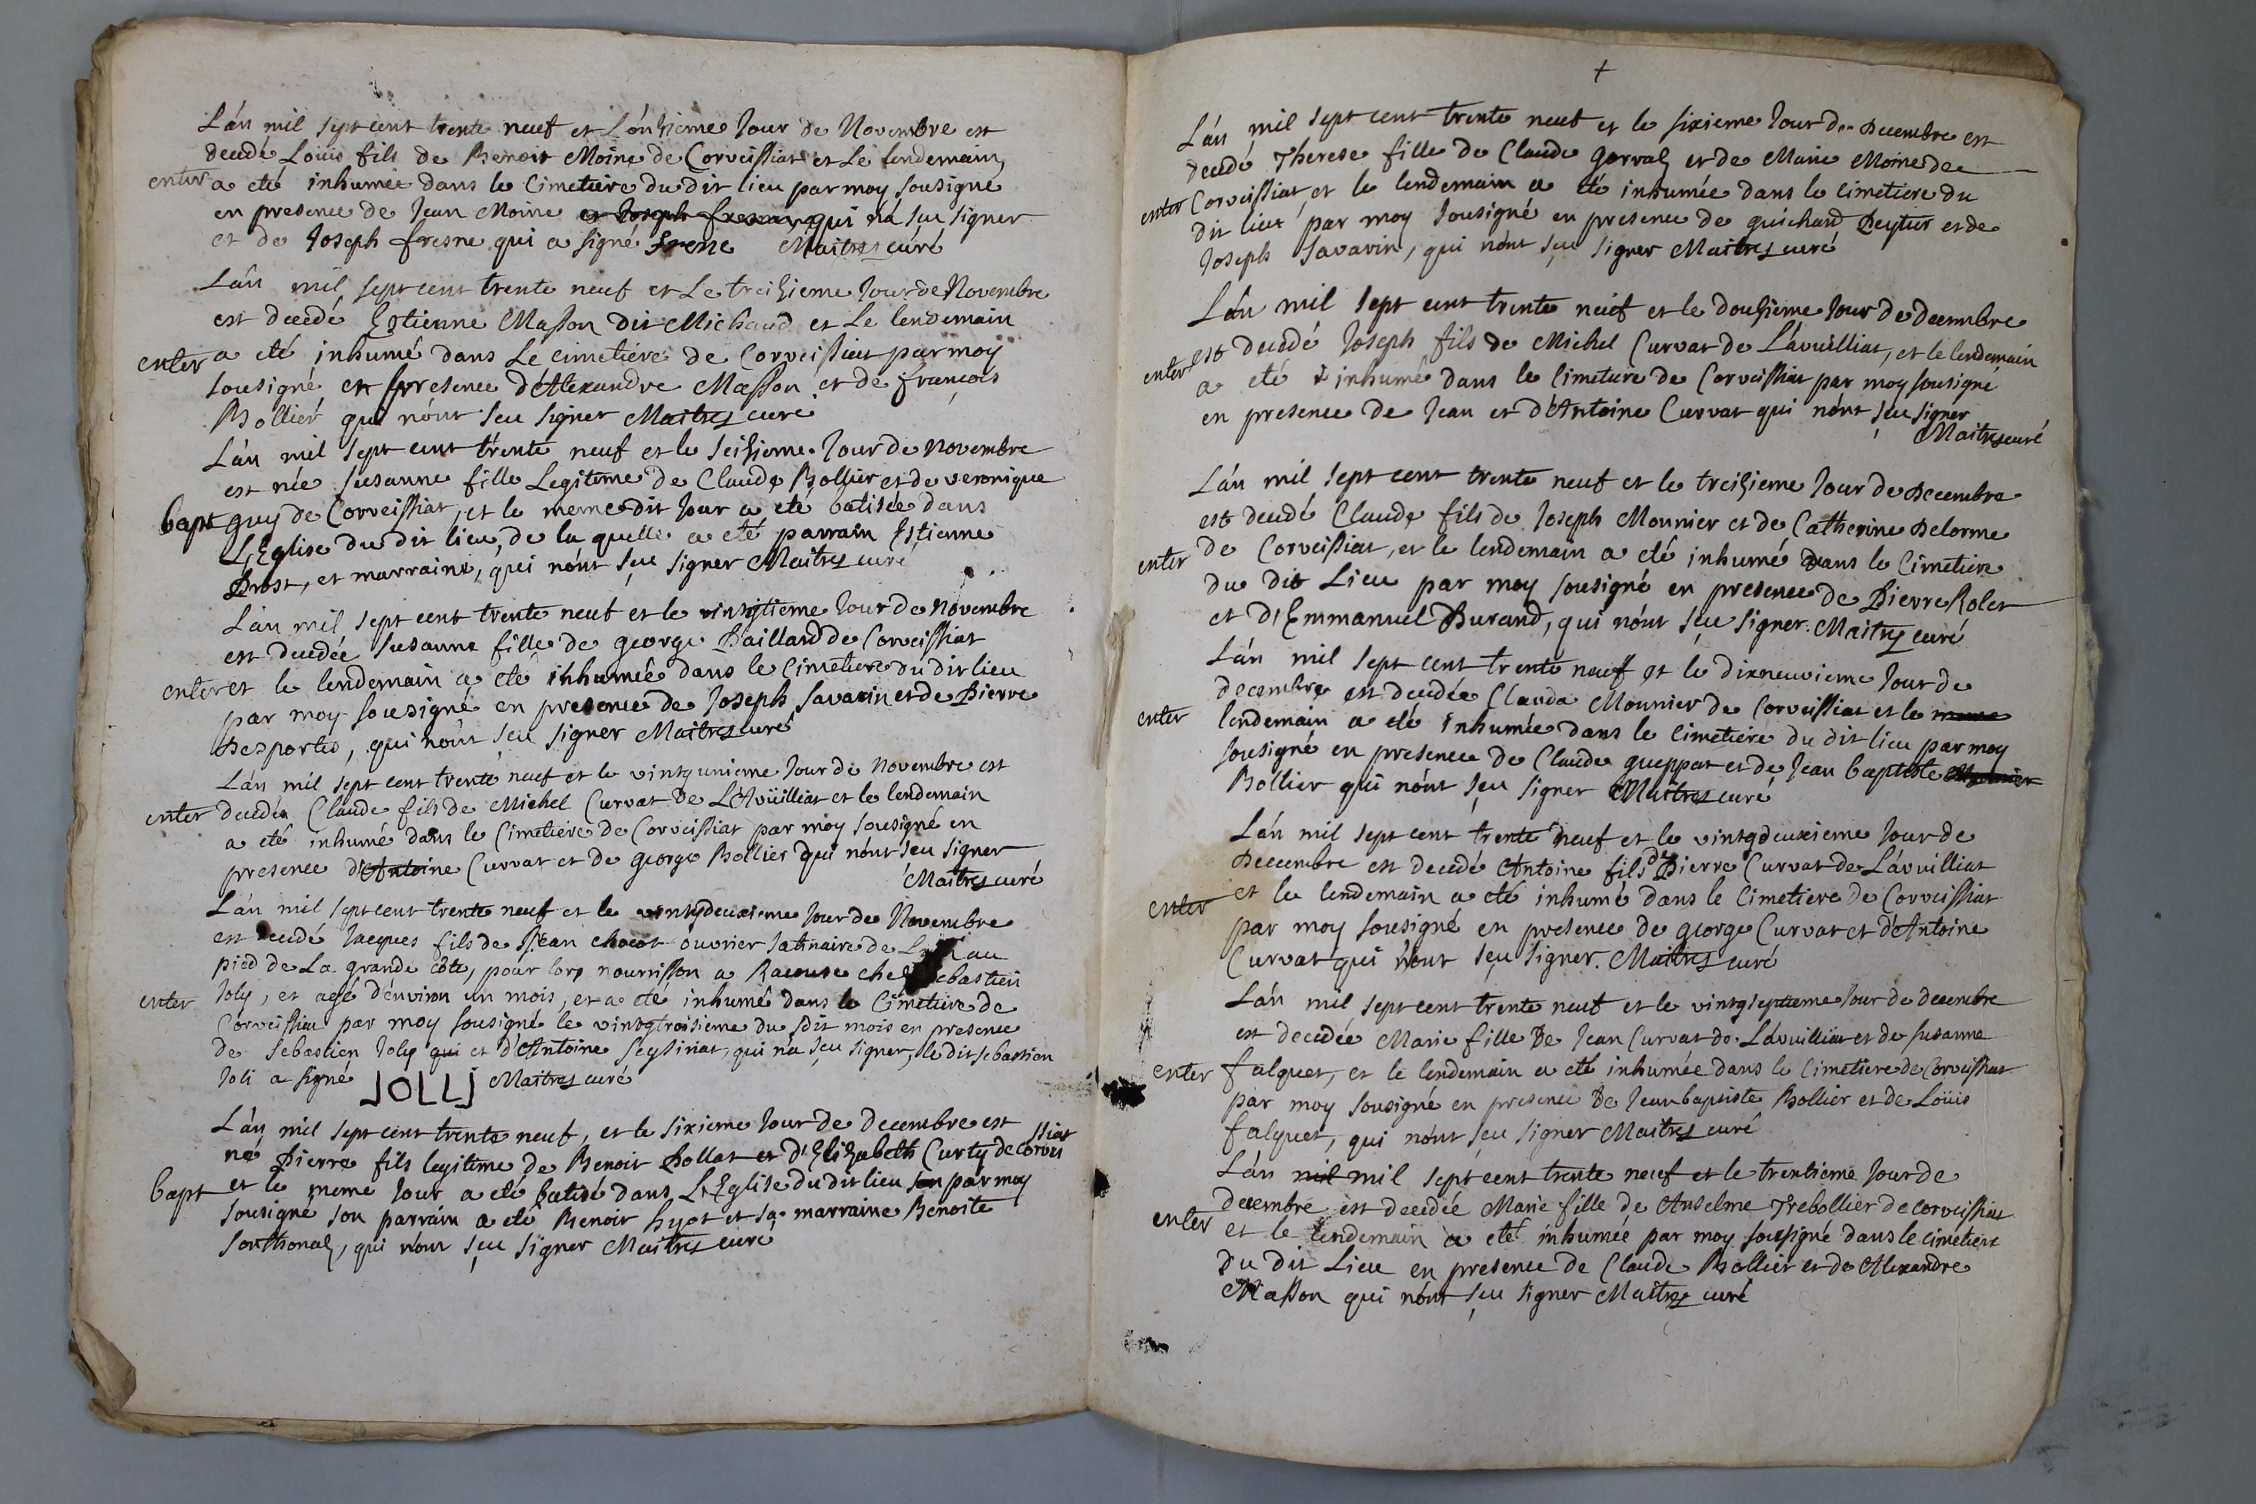 L'an mil sept cent trente neuf et L'onzieme Jour de Novembre est
decedé Loüis fils de Benoit Moine de Corveissiat et Le lendemain
enter a eté inhumée dans le Cimetiere du dit lieu par moy sousigné
en presence de Jean Moine et Joseph qui n'a sçu signer
et de Joseph fresne qui a signé frene Maitres curé
L'an mil sept cent trente neuf et Le treizieme Jour de Novembre
est decedé Estienne Masson dit Michaud et Le lendemain
enter a eté inhumé dans Le Cimetiere de Corveissiat par moy
sousigné en presence d'Alexandre Masson et de françois
Bollier qui n'ont sçu signer Maitres curé
L'an mil sept cent trente neuf et le seizieme Jour de Novembre
est née susanne fille Legitime de Claude Bollier et de veronique
bapt guy de Corveissiat, et le meme dit Jour a eté batisée dans
L'Eglise du dit lieu, de la quelle a eté parrain Estienne
Brost, et marraine, qui n'ont sçu signer Maitres curé
L'an mil sept cent trente neuf et le vintgtieme Jour de Novembre
est decedée susanne fille de george Paillard de Corveissiat
enter et le lendemain a eté inhumée dans le Cimetiere du dit lieu
par moy sousigné en presence de Joseph Savarin et de Pierre
Desportes, qui n'ont sçu signer Maitres curé
L'an mil sept cent trente neuf et le vintgunieme Jour de Novembre est
enter decedé Claude fils de Michel Curvat de L'Avüilliat et le lendemain
a eté inhumé dans le Cimetiere de Corveissiat par moy sousigné en
presence d'Antoine Curvat et de george Bollier qui n'ont sçu signer
Maitres curé
L'an mil sept cent trente neuf et le vintgdeuxieme Jour de Novembre
est decedé Jacques fils de Jean ouvrier satinaire de au
pied de La grande côte, pour lors nourrisson a Racouse chez Sebastien
enter Joly, et agé d'environ un mois, et a eté inhumé dans le Cimetiere de
Corveissiat par moy sousigné le vintgtroisieme du dit mois en presence
de Sebastien Joly qui et d'Antoine Seyssiriat, qui n'a sçu signer, le dit sebastien
Joli a signé JOLLJ Maitres curé
L'an mil sept cent trente neuf, et le sixieme Jour de Decembre est
né Pierre fils legitime de Benoit Pollat et d'Elizabeth Curty de Corveissiat
bapt et le meme Jour a eté batisé dans L'Eglise du dit lieu son par moy
sousigné son parrain a eté Benoit hyot et sa marraine Benoite
Sonthonas, qui n'ont sçu signer Maitres curé
+
L'an mil sept cent trente neuf et le sixieme Jour de Decembre est
decedé Therese fille de Claude gorvas et de Marie Moine de
enter Corveissiat, et le lendemain a eté inhumée dans le cimetiere du
dit lieu par moy sousigné en presence de guichard Peytur et de
Joseph Savarin, qui n'ont sçu signer Maitres curé
L'an mil sept cent trente neuf et le douzieme Jour de decembre
enter est decedé Joseph fils de Michel Curvat de L'avuilliat, et le lendemain
a eté inhumé dans le Cimetiere de Corveissiat par moy sousigné
en presence de Jean et d'Antoine Curvat qui n'ont sçu signer
Maitres curé
L'an mil sept cent trente neuf et le treizieme Jour de Decembre
est decedé Claude fils de Joseph Mounier et de Catherine Delorme
enter de Corveissiat, et le lendemain a eté inhumé dans le Cimetiere
du dit Lieu par moy sousigné en presence de Pierre Rolet
et d'Emmanuel Durand, qui n'ont sçu signer. Maitres curé
L'an mil sept cent trente neuf et le dixneuvieme Jour de
decembre est decedée Clauda Mounier de Corveissiat et le meme
enter lendemain a eté inhumée dans le Cimetiere du dit lieu par moy
sousigné en presence de Claude gueppat et de Jean baptiste Mounier
Bollier qui n'ont sçu signer Maitres curé
L'an mil sept cent trente neuf et le vintgdeuxieme Jour de
Decembre est decedé Antoine fils de Pierre Curvat de L'avuilliat
enter et le lendemain a eté inhumé dans le Cimetiere de Corveissiat
par moy sousigné en presence de george Curvat et d'Antoine
Curvat qui n'ont sçu signer. Maitres curé
L'an mil sept cent trente neuf et le vintgseptieme Jour de decembre
est decedée Marie fille De Jean Curvat de L'avuilliat et de susanne
enter falquet, et le lendemain a eté inhumée dans le Cimetiere de Corveissiat
par moy sousigné en presence De Jeanbaptiste Bollier et de Loüis
falquet, qui n'ont sçu signer Maitres curé
L'an mil mil sept cent trente neuf et le trentieme Jour de
decembre est decedée Marie fille de Anselme Trebollier de corveissiat
enter et le lendemain a eté inhumée par moy sousigné dans le cimetiere
du dit Lieu en presence de Claude Bollier et de Alexandre
Masson qui n'ont sçu signer Maitres curé